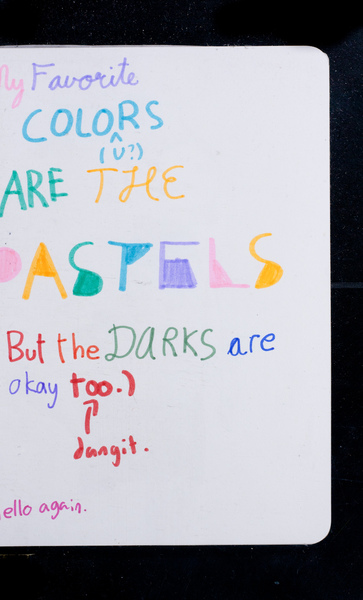 My Favorite
COLORS
^
(U?)
ARE THE
PASTELS
But the DARKS are
okay too.)
dangit.
ello again.